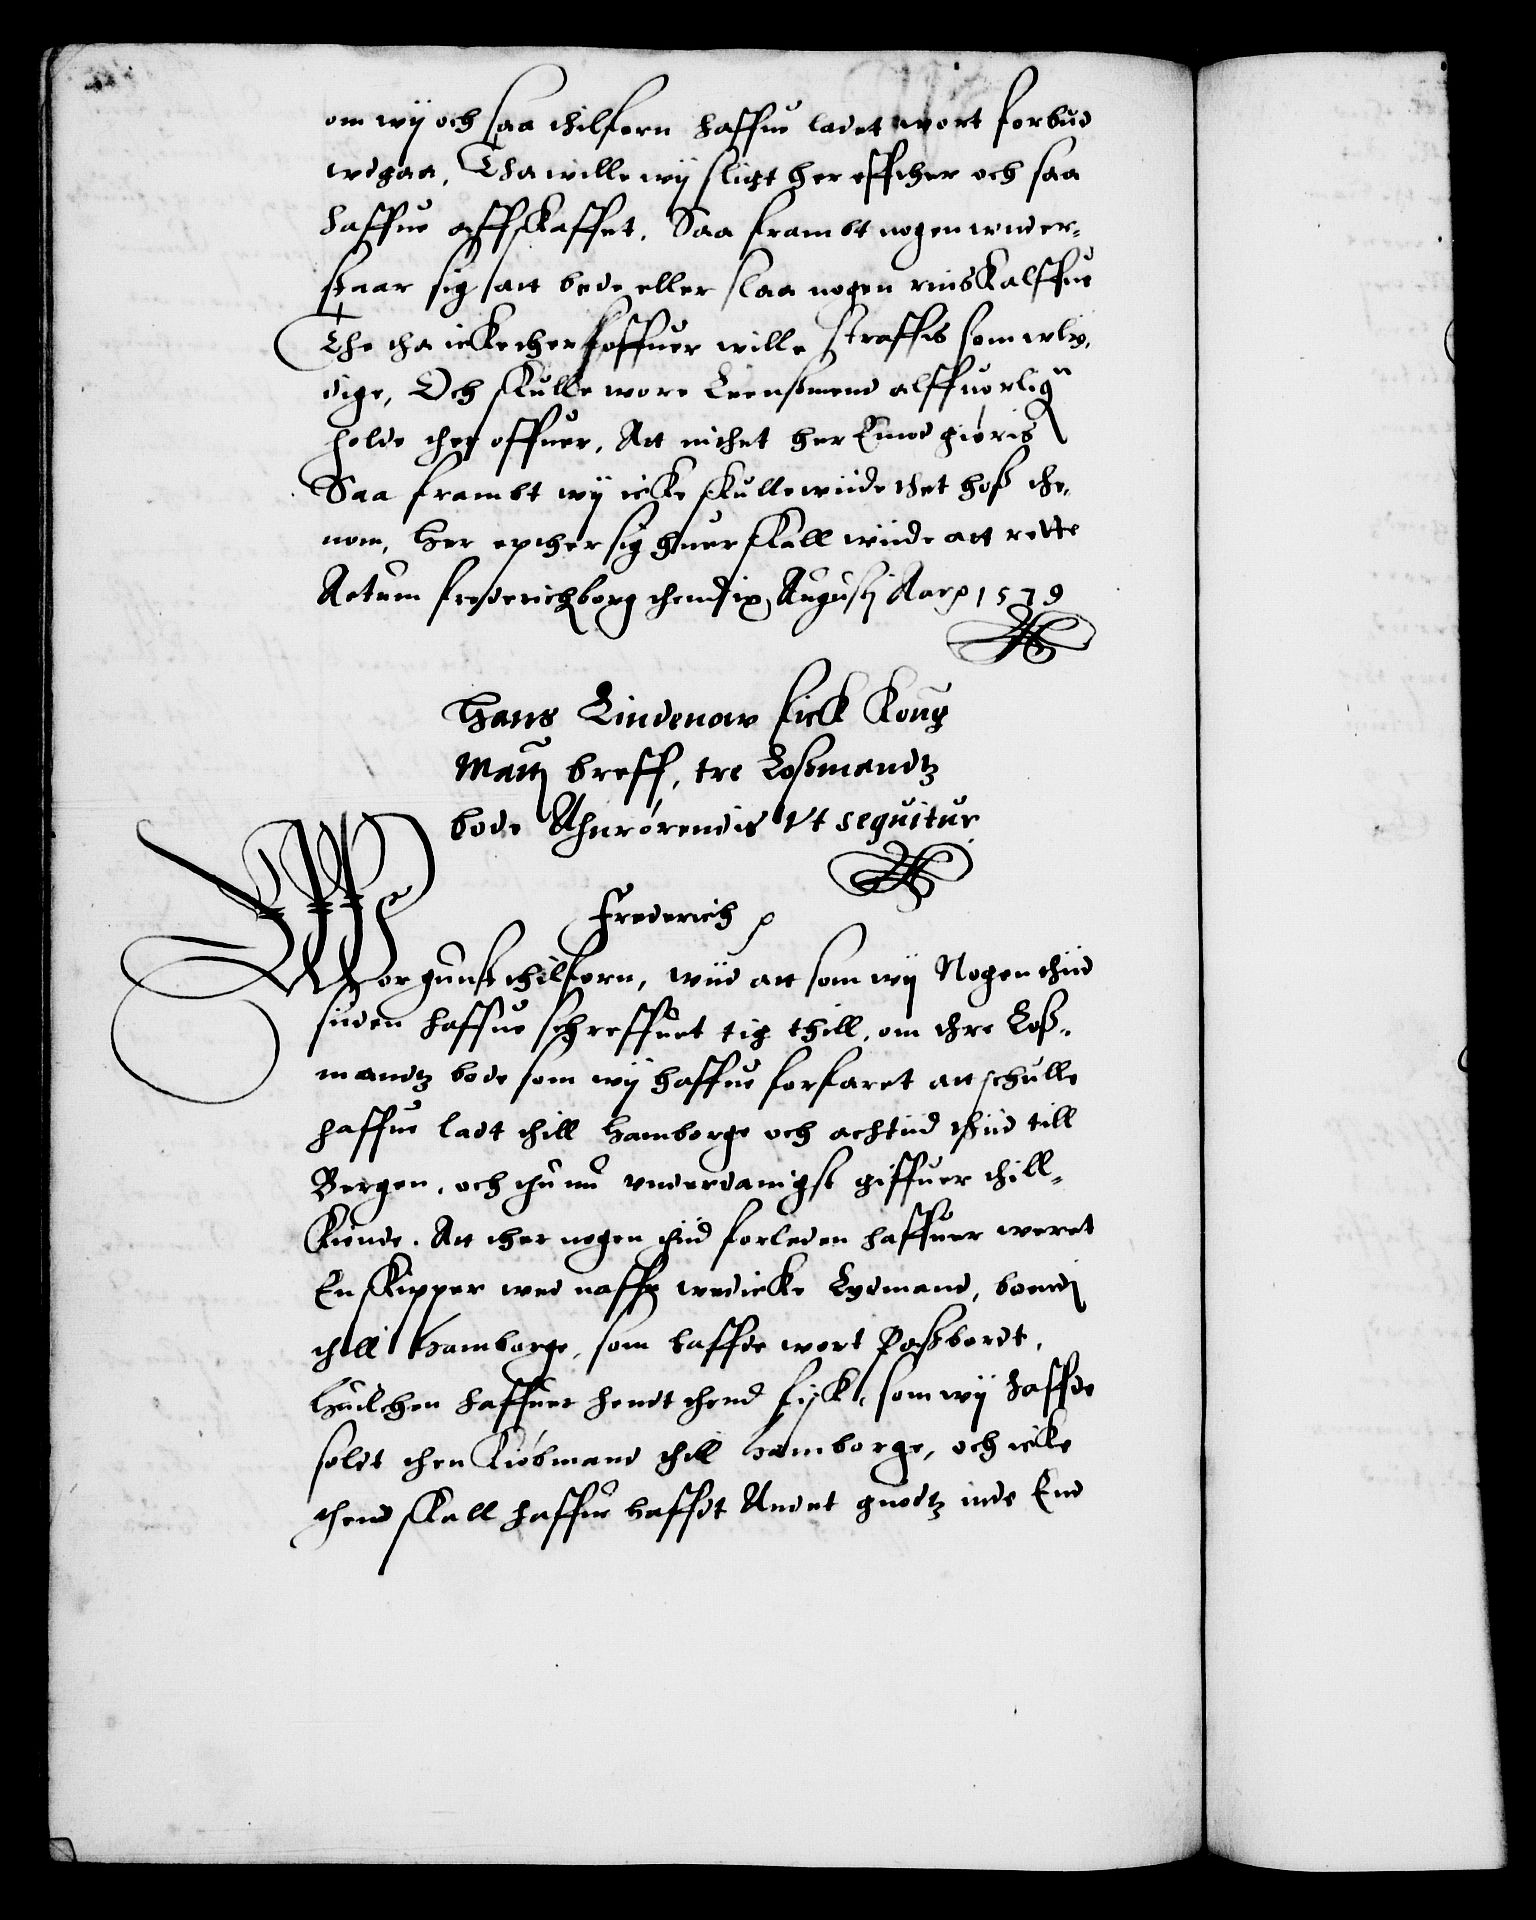 om wij och saa thilforn haffue ladet wort forbud
wdgaa, Tha wille wij sligt her effther och saa
haffue affskaffet. Saa frambt nogen wnder-
staar sig att bede eller slaa nogen rinskalffue
The tha icke ther foffuer wille straffis som wly,
dige, Och skulle wore Leensmend alffuorlig
holde ther offuer, Att inthet her Emod giøris
Saa frambt wij icke skulle wiide thet hoss the,
nom, Her epther sig huer skall wiide att rette
Actum frederichsborg thend ix Augustj Aar 1579
Hans Lindenow fick Kong
Matt breff, tre Lossmandtz
bode Ahnrørendis Vt sequitur
Frederich
Wor gunst thilforn, wiid att som wij Nogen thiid
siiden haffue schreffuet tig thill, om thre Loss-
mandtz bode som wij haffue forfaret att schulle
haffue ladt thill Hamborge och achtiid thiid till
Bergen, och thu nu vnderdanigst giffuer thill-
Kiende. Att ther nogen thiid forleden haffuer weret
En skipper wed naffn wedicke Lydmand, boend
thill Hamborge, som haffde wort Passbordt,
Huilchen haffuer hendt thend fisk, som wij haffde
soldt then Kiøbmand thill Hamborge, och icke
thend skall haffue hafft Andet guodtz inde End